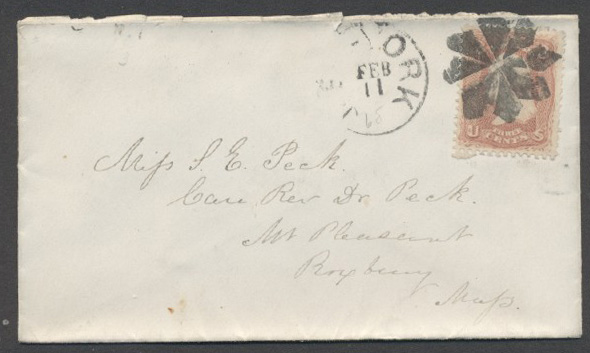 YORK
FEB
11
U THREE S
CENTS
Miss S. E. Peck.
Care Rev Dr. Peck.
Mt Pleasant
Roxbury
Mass.